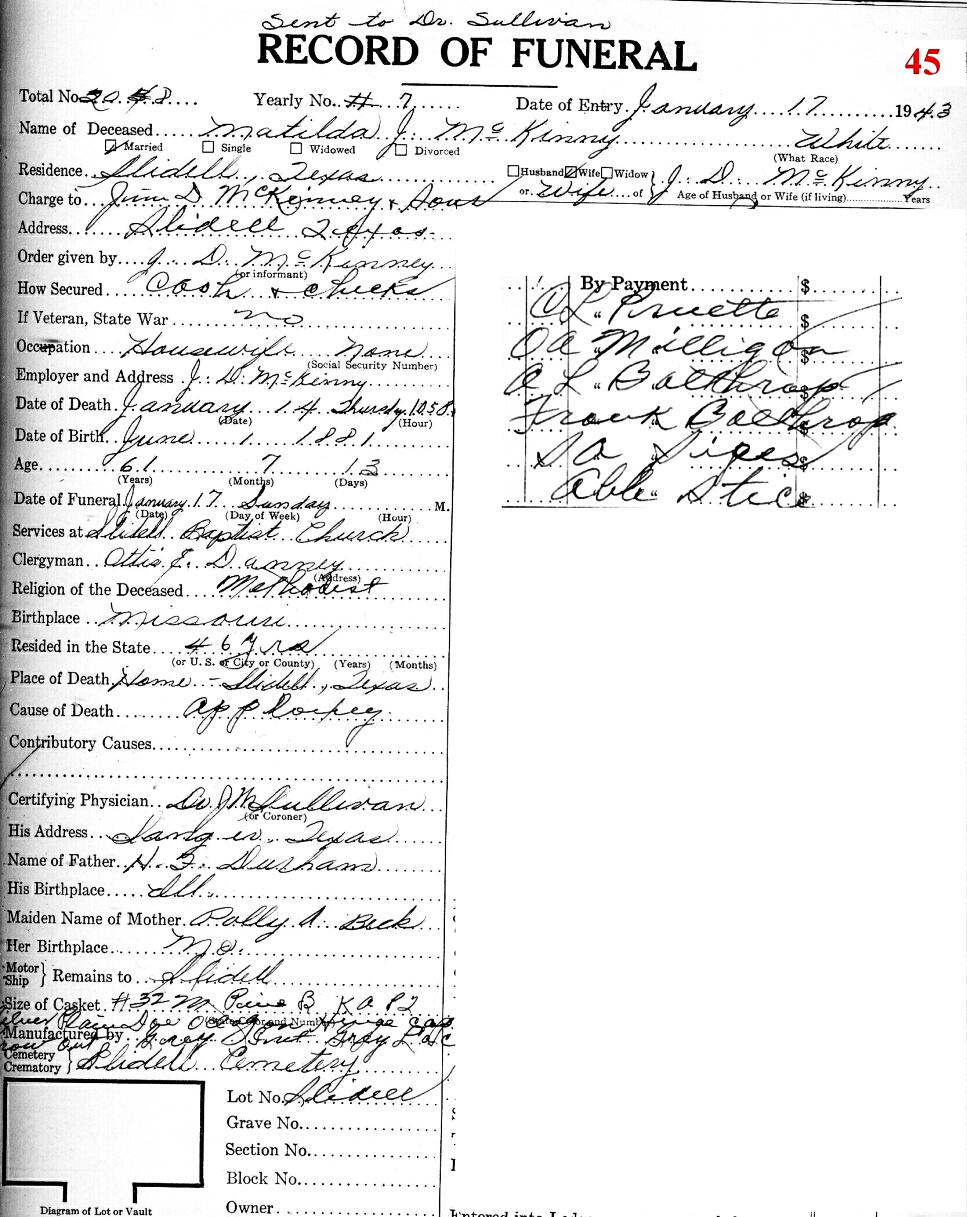 Sent to Dr. Sullivan
RECORD OF FUNERAL
45
Total No. 20 Yearly No. # 7 Date of Entry January 17 1943
Name of Deceased Matilda J. McKinny White
Married Single Widowed Divorced (What Race)
Residence Slidell, Texas Husband Wife Widow
or Wife of J. D. McKinny
Age of Husband or Wife (if living) Years
Charge to Jim D. McKinney & Sons
Address Slidell Texas
Order given by J. D. McKinney
(or informant)
How Secured Cash & checks
If Veteran, State War no
Occupation Housewife None
(Social Security Number)
Employer and Address J. D. McKinny
Date of Death January 14 Thursdy 10:50
(Date) (Hour)
Date of Birth June 1 1881
Age 61 7 13
(Years) (Months) (Days)
Date of Funeral January 17 Sunday M.
(Date) (Day of Week) (Hour)
Services at Slidell Baptist Church
Clergyman Ottis E. Danney
(Address)
Religion of the Deceased Methodist
Birthplace Missouri
Resided in the State 46 yrs
(or U. S. or City or County) (Years) (Months)
Place of Death Home - Slidell, Texas
Cause of Death apploxpey
Contributory Causes
Certifying Physician Dr. J M Sullivan
(or Coroner)
His Address Sanger Texas
Name of Father H. F. Durham
His Birthplace Ill.
Maiden Name of Mother Polly A. Beck
Her Birthplace Mo.
Motor Ship } Remains to Slidell
Size of Casket #32 M Pine B K A P2
Silver Plain
(State Color and Number)
Manufactured by
Cemetery Crematory } Slidell Cemetery
Lot No. Slidell
Grave No.
Section No.
Block No.
Owner
Diagram of Lot or Vault
By Payment $
C L Pruette $
O A Milligan $
A L Balthrop $
Frank Balthrop $
S A Sipes $
Able Stice $